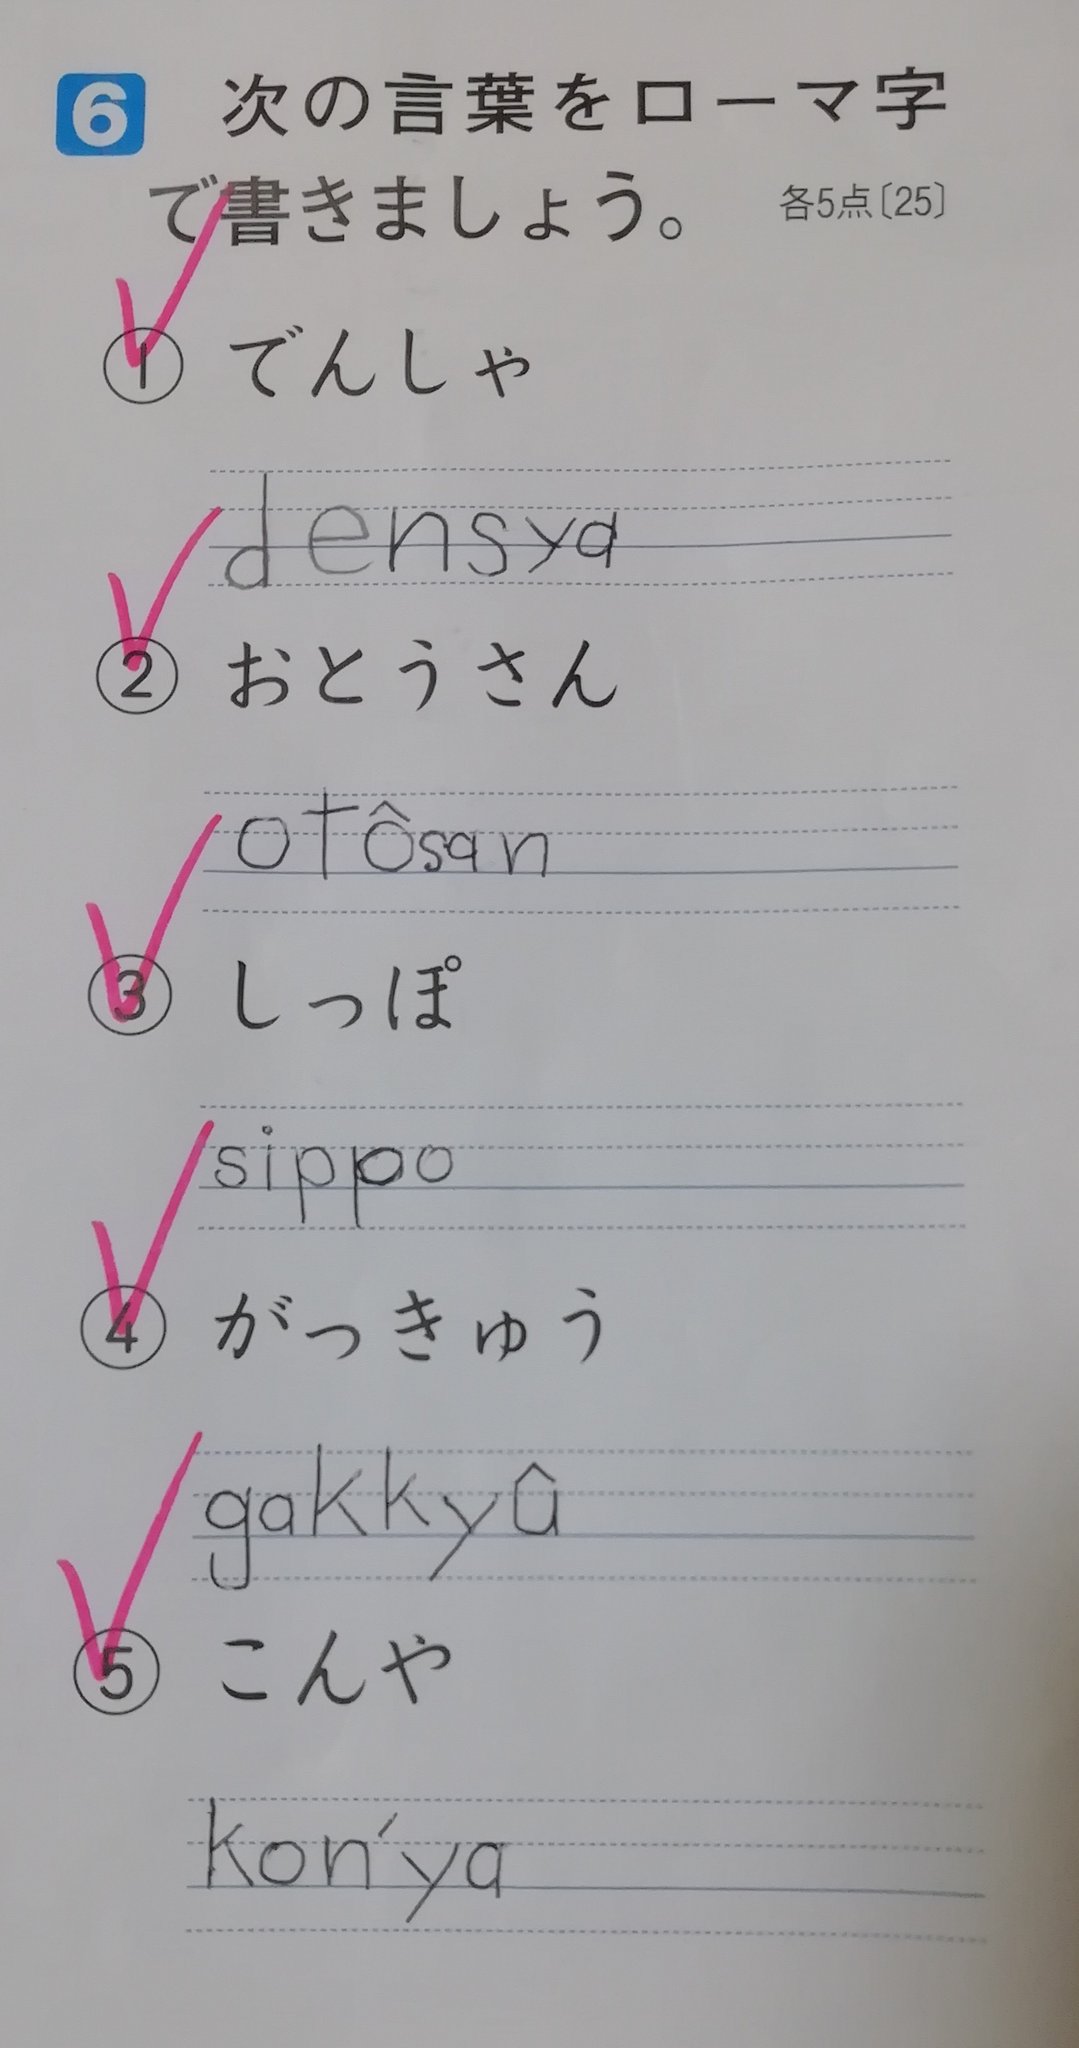 6 次の言葉をローマ字
で書きましょう。 各5点〔25〕
① でんしゃ
densya
② おとうさん
otôsan
③ しっぽ
sippo
④ がっきゅう
gakkyû
⑤ こんや
kon'ya